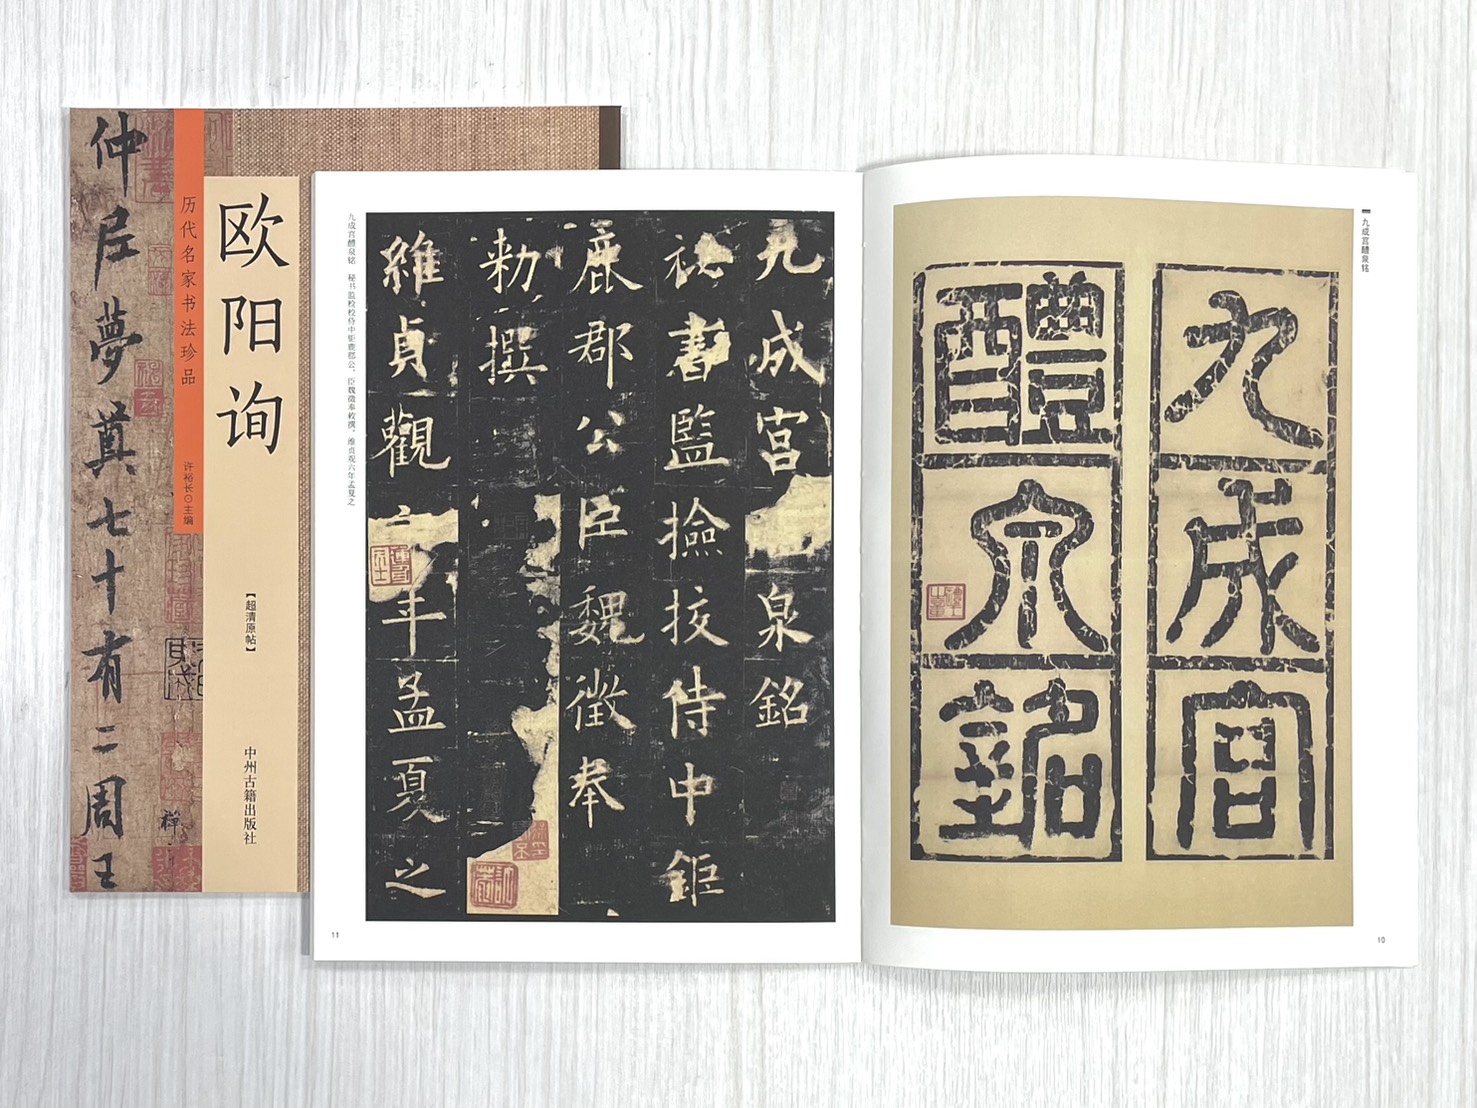 仲尼夢奠七十有二周王
历代名家书法珍品
许裕长⊙主编
欧阳询
【超清原帖】
中州古籍出版社
九成宫醴泉铭
九成宮
醴泉銘
10
九成宮
泉銘
秘書監撿挍侍中鉅
鹿郡公臣魏徵奉
勑撰
維貞觀
年孟夏之
九成宫醴泉铭 秘书监检校侍中钜鹿郡公，臣魏徵奉敕撰，维贞观六年孟夏之
11